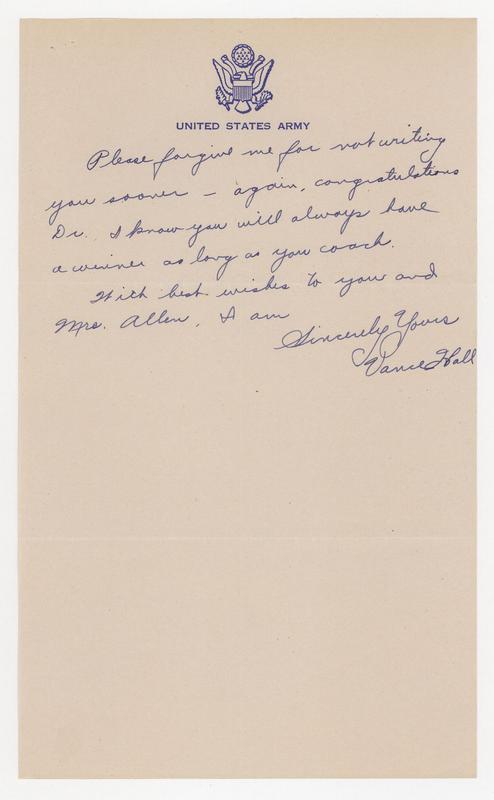 UNITED STATES ARMY
Please forgive me for not writing
you sooner – again, congratulations
Dr. I know you will always have
a winner as long as you coach.
With best wishes to you and
Mrs. Allen, I am
Sincerely Yours
Vance Hall